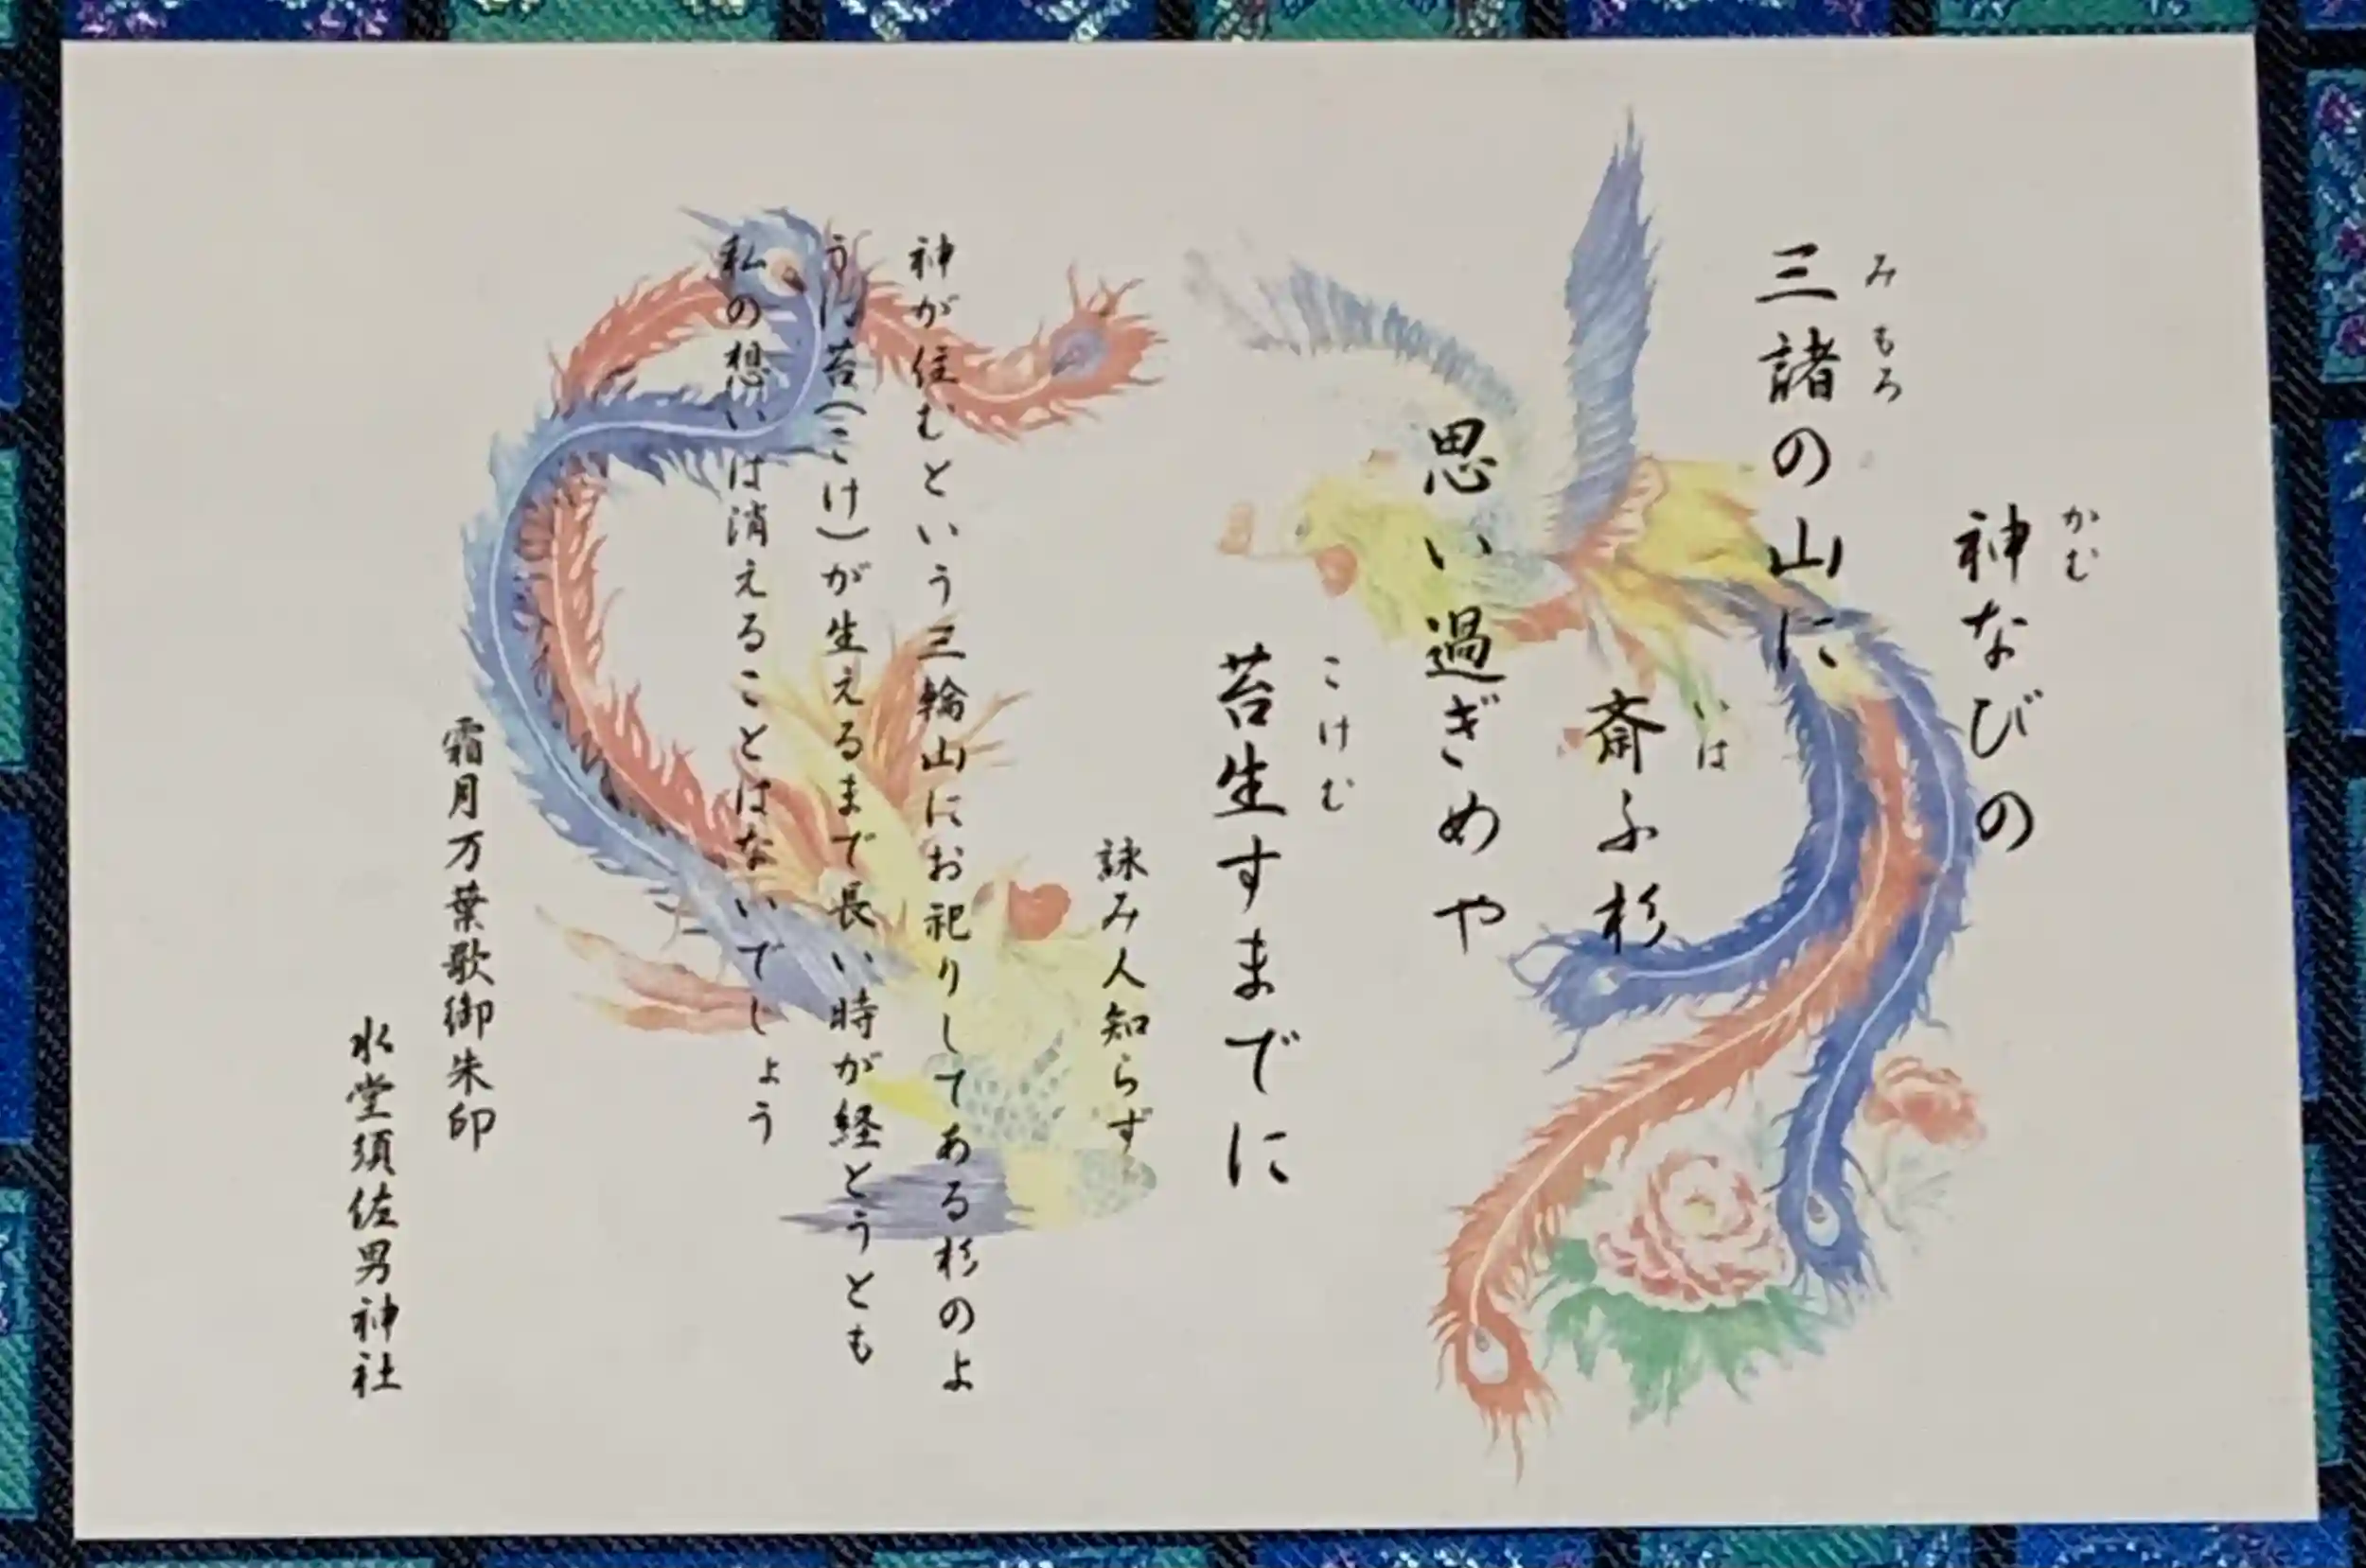 神なびの
かむ
三諸の山に
みもろ
斎ふ杉
いは
思い過ぎめや
苔生すまでに
こけむ
詠み人知らず
神が住むという三輪山にお祀りしてある杉のよ
うに苔(こけ)が生えるまで長い時が経とうとも
私の想いは消えることはないでしょう
霜月万葉歌御朱印
水堂須佐男神社